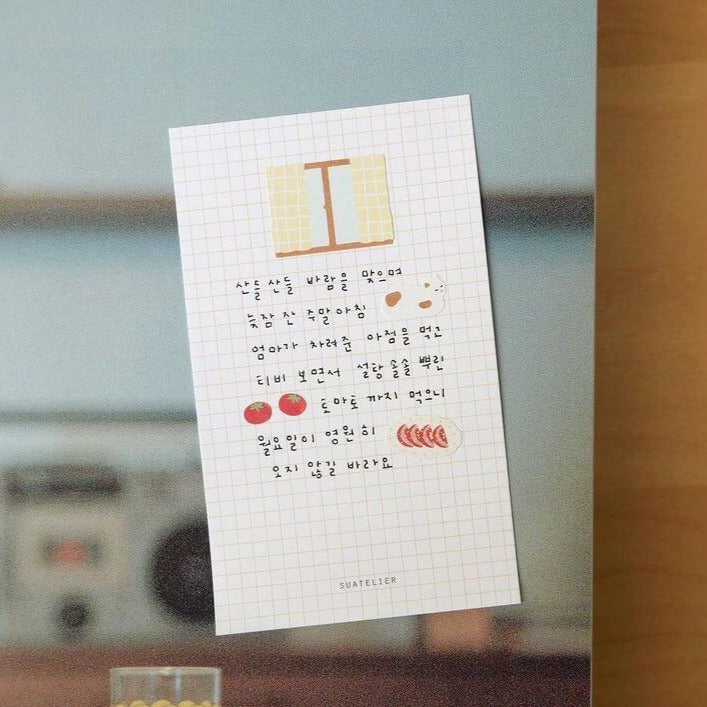 산들산들 바람을 맞으며
늦잠 잔 주말 아침
엄마가 차려준 아점을 먹고
티비 보면서 설탕 솔솔 뿌린
토마토 까지 먹으니
월요일이 영원히
오지 않길 바라요
SUATELIER